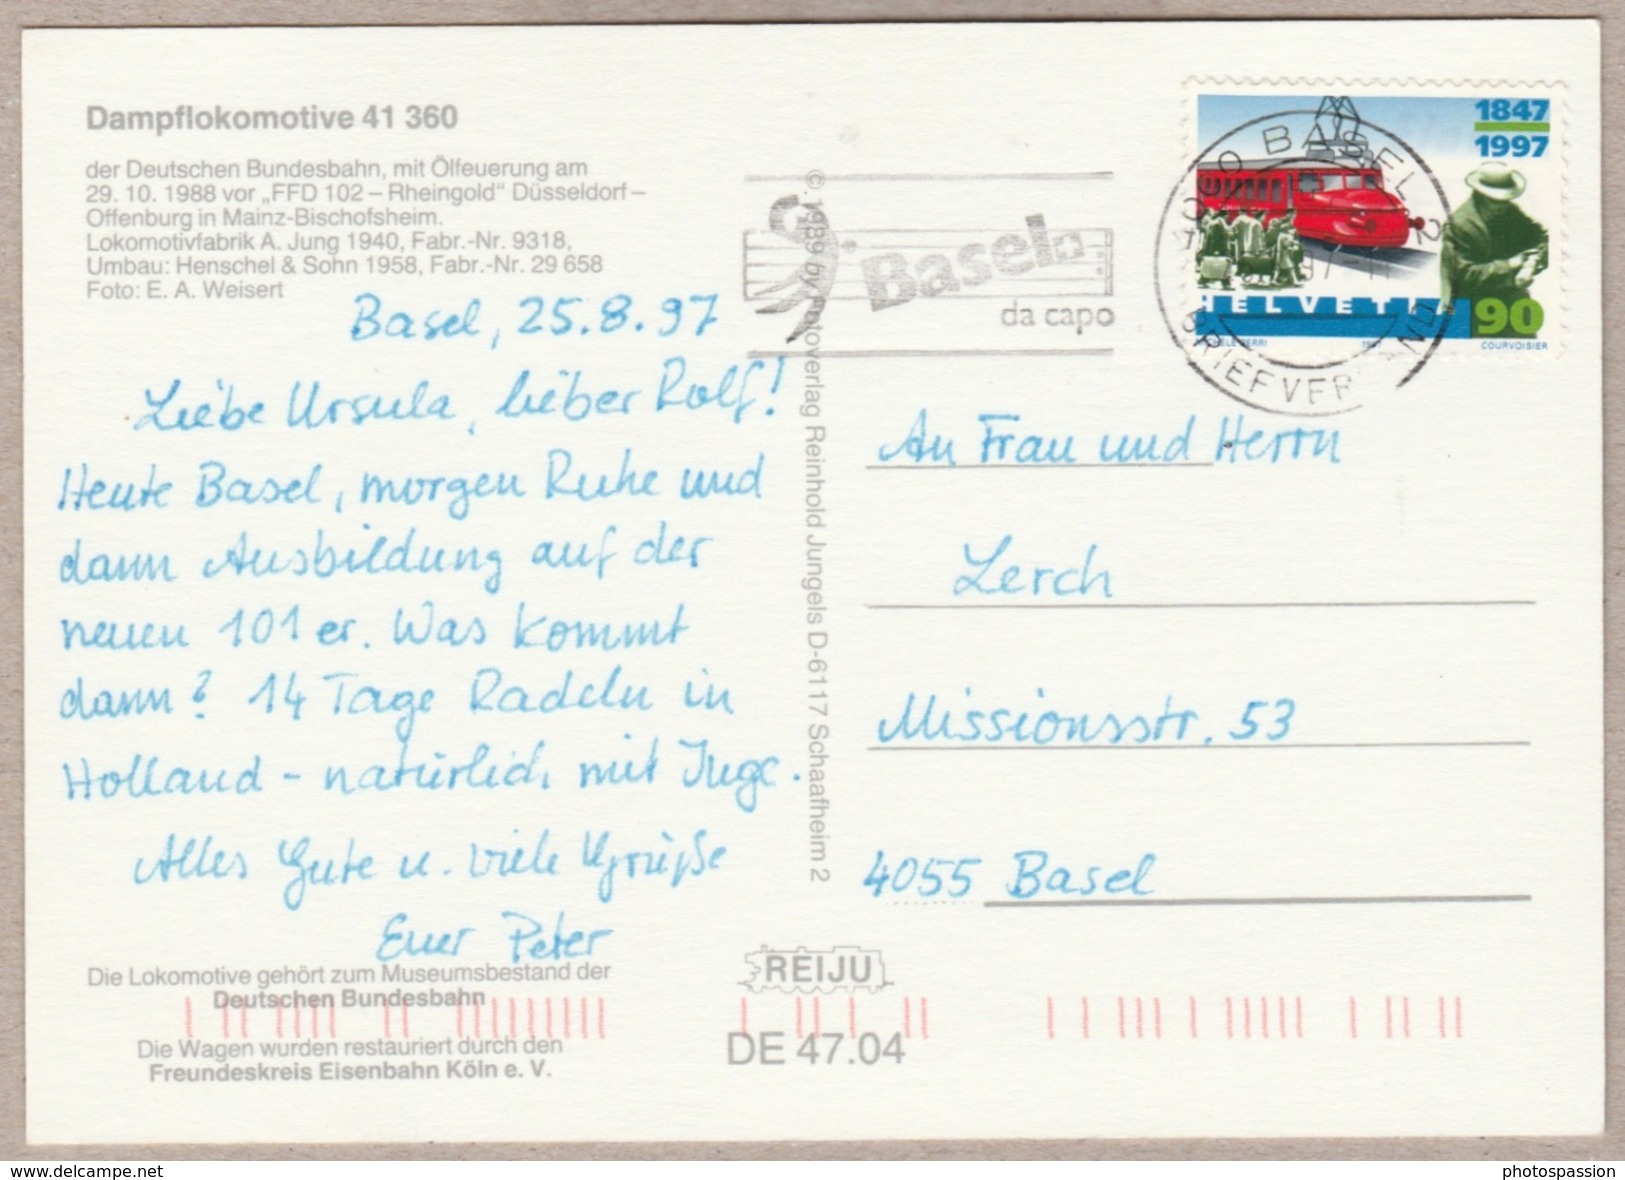 Dampflokomotive 41 360
der Deutschen Bundesbahn, mit Ölfeuerung am
29. 10. 1988 vor „FFD 102 – Rheingold" Düsseldorf –
Offenburg in Mainz-Bischofsheim.
Lokomotivfabrik A. Jung 1940, Fabr.-Nr. 9318,
Umbau: Henschel & Sohn 1958, Fabr.-Nr. 29 658
Foto: E. A. Weisert
Basel, 25.8.97
Liebe Ursula, lieber Rolf!
Heute Basel, morgen Ruhe und
dann Ausbildung auf der
neuen 101 er. Was kommt
dann? 14 Tage Radeln in
Holland – natürlich mit Inge.
Alles Gute u. viele Grüße
Euer Peter
Die Lokomotive gehört zum Museumsbestand der
Deutschen Bundesbahn
Die Wagen wurden restauriert durch den
Freundeskreis Eisenbahn Köln e. V.
© 1989 by Fotoverlag Reinhold Jungels D-6117 Schaafheim 2
REIJU
DE 47.04
Basel
da capo
BASEL 2
BRIEFVERSAND
1847
1997
HELVETIA 90
COURVOISIER
An Frau und Herrn
Lerch
Missionsstr. 53
4055 Basel
www.delcampe.net
photospassion